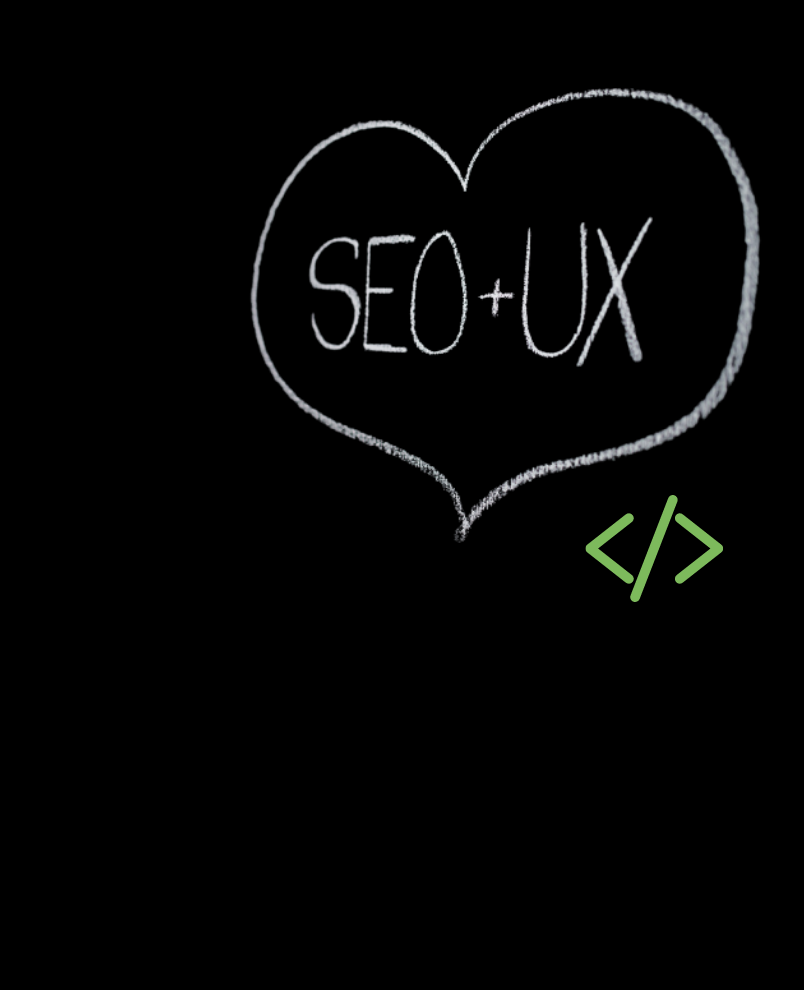 SEO+UX
</>